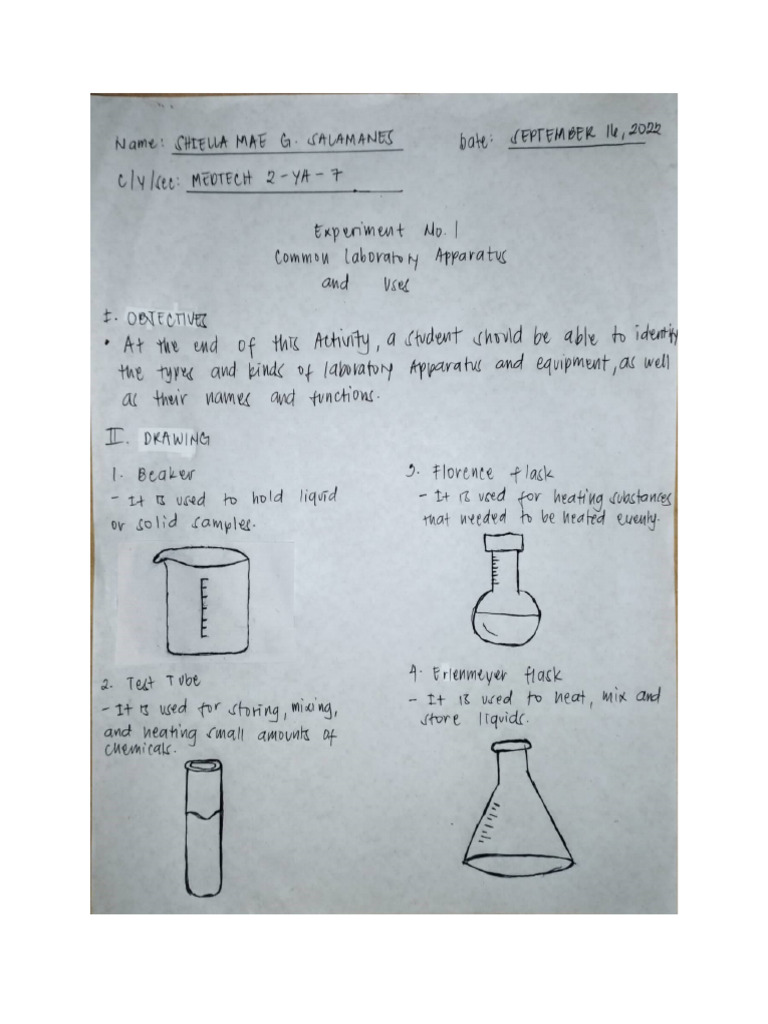 Name: SHIELLA MAE G. SALAMANES
Date: SEPTEMBER 16, 2022
C/Y/Sec: MEDTECH 2-YA-7
Experiment No. 1
Common Laboratory Apparatus
and Uses
I. OBJECTIVES
• At the end of this Activity, a student should be able to identify
the types and kinds of laboratory Apparatus and equipment, as well
as their names and functions.
II. DRAWING
1. Beaker
- It is used to hold liquid
or solid samples.
2. Test Tube
- It is used for storing, mixing,
and heating small amounts of
chemicals.
3. Florence flask
- It is used for heating substances
that needed to be heated evenly.
4. Erlenmeyer flask
- It is used to heat, mix and
store liquids.